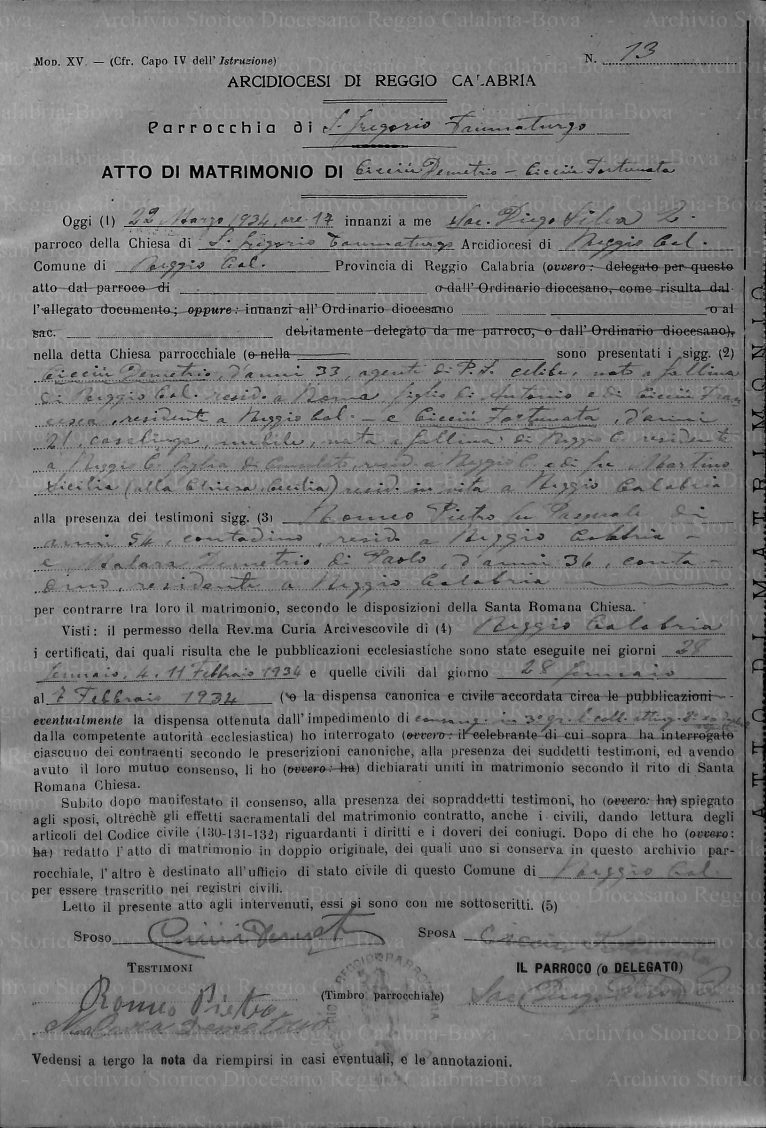 Archivio Storico Diocesano Reggio Calabria-Bova - Archivio Storico
MOD. XV. — (Cfr. Capo IV dell'Istruzione) N. 13
ARCIDIOCESI DI REGGIO CALABRIA
Parrocchia di S. Gregorio Taumaturgo
ATTO DI MATRIMONIO DI Cicciù Demetrio - Cicciù Fortunata
Oggi (1) 22 Marzo 1934, ore 17 innanzi a me Sac. Diego
parroco della Chiesa di S. Gregorio Taumaturgo Arcidiocesi di Reggio Cal.
Comune di Reggio Cal. Provincia di Reggio Calabria (ovvero: delegato per questo
atto dal parroco di o dall'Ordinario diocesano, come risulta dal-
l'allegato documento; oppure: innanzi all'Ordinario diocesano o al
sac. debitamente delegato da me parroco, o dall'Ordinario diocesano),
nella detta Chiesa parrocchiale (o nella sono presentati i sigg. (2)
Cicciù Demetrio, d'anni 33, agente di P.S. celibe, nato a Gallina
di Reggio Cal. resid. a Roma figlio di Antonio e di Cicciù Fran
cesca, residenti a Reggio Cal. - e Cicciù Fortunata, d'anni
21, casalinga, nubile, nata a Gallina di Reggio C. residente
a Reggio C. figlia di Consolato, resid. a Reggio C. e di fu Martino
Sicilia (alla Chiesa Cecilia) resid. in vita a Reggio Calabria
alla presenza dei testimoni sigg. (3) Romeo Pietro fu Pasquale di
anni 54, contadino, resid. a Reggio Calabria -
e Malara Demetrio di Paolo, d'anni 36, conta
dino, residente a Reggio Calabria
per contrarre tra loro il matrimonio, secondo le disposizioni della Santa Romana Chiesa.
Visti: il permesso della Rev.ma Curia Arcivescovile di (4) Reggio Calabria
i certificati, dai quali risulta che le pubblicazioni ecclesiastiche sono state eseguite nei giorni 28
Gennaio, 4, 11 Febbraio 1934 e quelle civili dal giorno 28 Gennaio
al 7 Febbraio 1934 (o la dispensa canonica e civile accordata circa le pubblicazioni -
eventualmente la dispensa ottenuta dall'impedimento di consang. in 3° gr.
dalla competente autorità ecclesiastica) ho interrogato (ovvero: il celebrante di cui sopra ha interrogato
ciascuno dei contraenti secondo le prescrizioni canoniche, alla presenza dei suddetti testimoni, ed avendo
avuto il loro mutuo consenso, li ho (ovvero: ha) dichiarati uniti in matrimonio secondo il rito di Santa
Romana Chiesa.
Subito dopo manifestato il consenso, alla presenza dei sopraddetti testimoni, ho (ovvero: ha) spiegato
agli sposi, oltrechè gli effetti sacramentali del matrimonio contratto, anche i civili, dando lettura degli
articoli del Codice civile (130-131-132) riguardanti i diritti e i doveri dei coniugi. Dopo di che ho (ovvero:
ha) redatto l'atto di matrimonio in doppio originale, dei quali uno si conserva in questo archivio par-
rocchiale, l'altro è destinato all'ufficio di stato civile di questo Comune di Reggio Cal.
per essere trascritto nei registri civili.
Letto il presente atto agli intervenuti, essi si sono con me sottoscritti. (5)
SPOSO Cicciù Demetrio SPOSA Cicciù Fortunata
TESTIMONI IL PARROCO (o DELEGATO)
Romeo Pietro (Timbro parrocchiale) Sac. Diego
Malara Demetrio
Vedensi a tergo la nota da riempirsi in casi eventuali, e le annotazioni.
ATTO DI MATRIMONIO